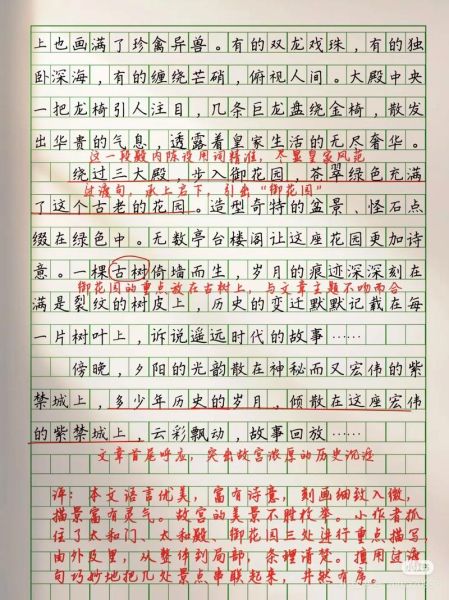 上也画满了珍禽异兽。有的双龙戏珠，有的独
卧深海，有的缠绕芒硝，俯视人间。大殿中央
一把龙椅引人注目，几条巨龙盘绕金椅，散发
出华贵的气息，透露着皇家生活的无尽奢华。
这一段殿内陈设用词精准，尽显皇家风范
绕过三大殿，步入御花园，苍翠绿色充满
过渡句，承上启下，引出“御花园”
了这个古老的花园。造型奇特的盆景、怪石点
缀在绿色中。无数亭台楼阁让这座花园更加诗
意。一棵古树倚墙而生，岁月的痕迹深深刻在
御花园的重点放在古树上，与文章主题不吻而合
满是裂纹的树皮上，历史的变迁默默记载在每
一片树叶上，诉说遥远时代的故事……
傍晚，夕阳的光韵散在神秘而又宏伟的紫
禁城上，多少年历史的岁月，倾散在这座宏伟
的紫禁城上，云彩飘动，故事回放……
文章首尾呼应，突出故宫浓厚的历史沉淀
评：本文语言优美，富有诗意，刻画细致入微，
描景富有灵气。故宫的美景不胜枚举。小作者抓
住了太和门、太和殿、御花园三处进行重点描写，
由外及里，从整体到局部，条理清楚。擅用过渡
句巧妙地把几处景点串联起来，井然有序。
小红书